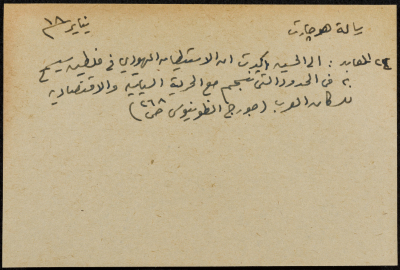 رسالة هوجارت
يناير ١٨
المعاهد: الى الحسين أكدت ان الاستيطان اليهودي في فلسطين سيسمح
به في الحدود التي تنسجم مع الحرية السياسية والاقتصادية
للسكان العرب (جورج انطونيوس ص ٢٦٨)